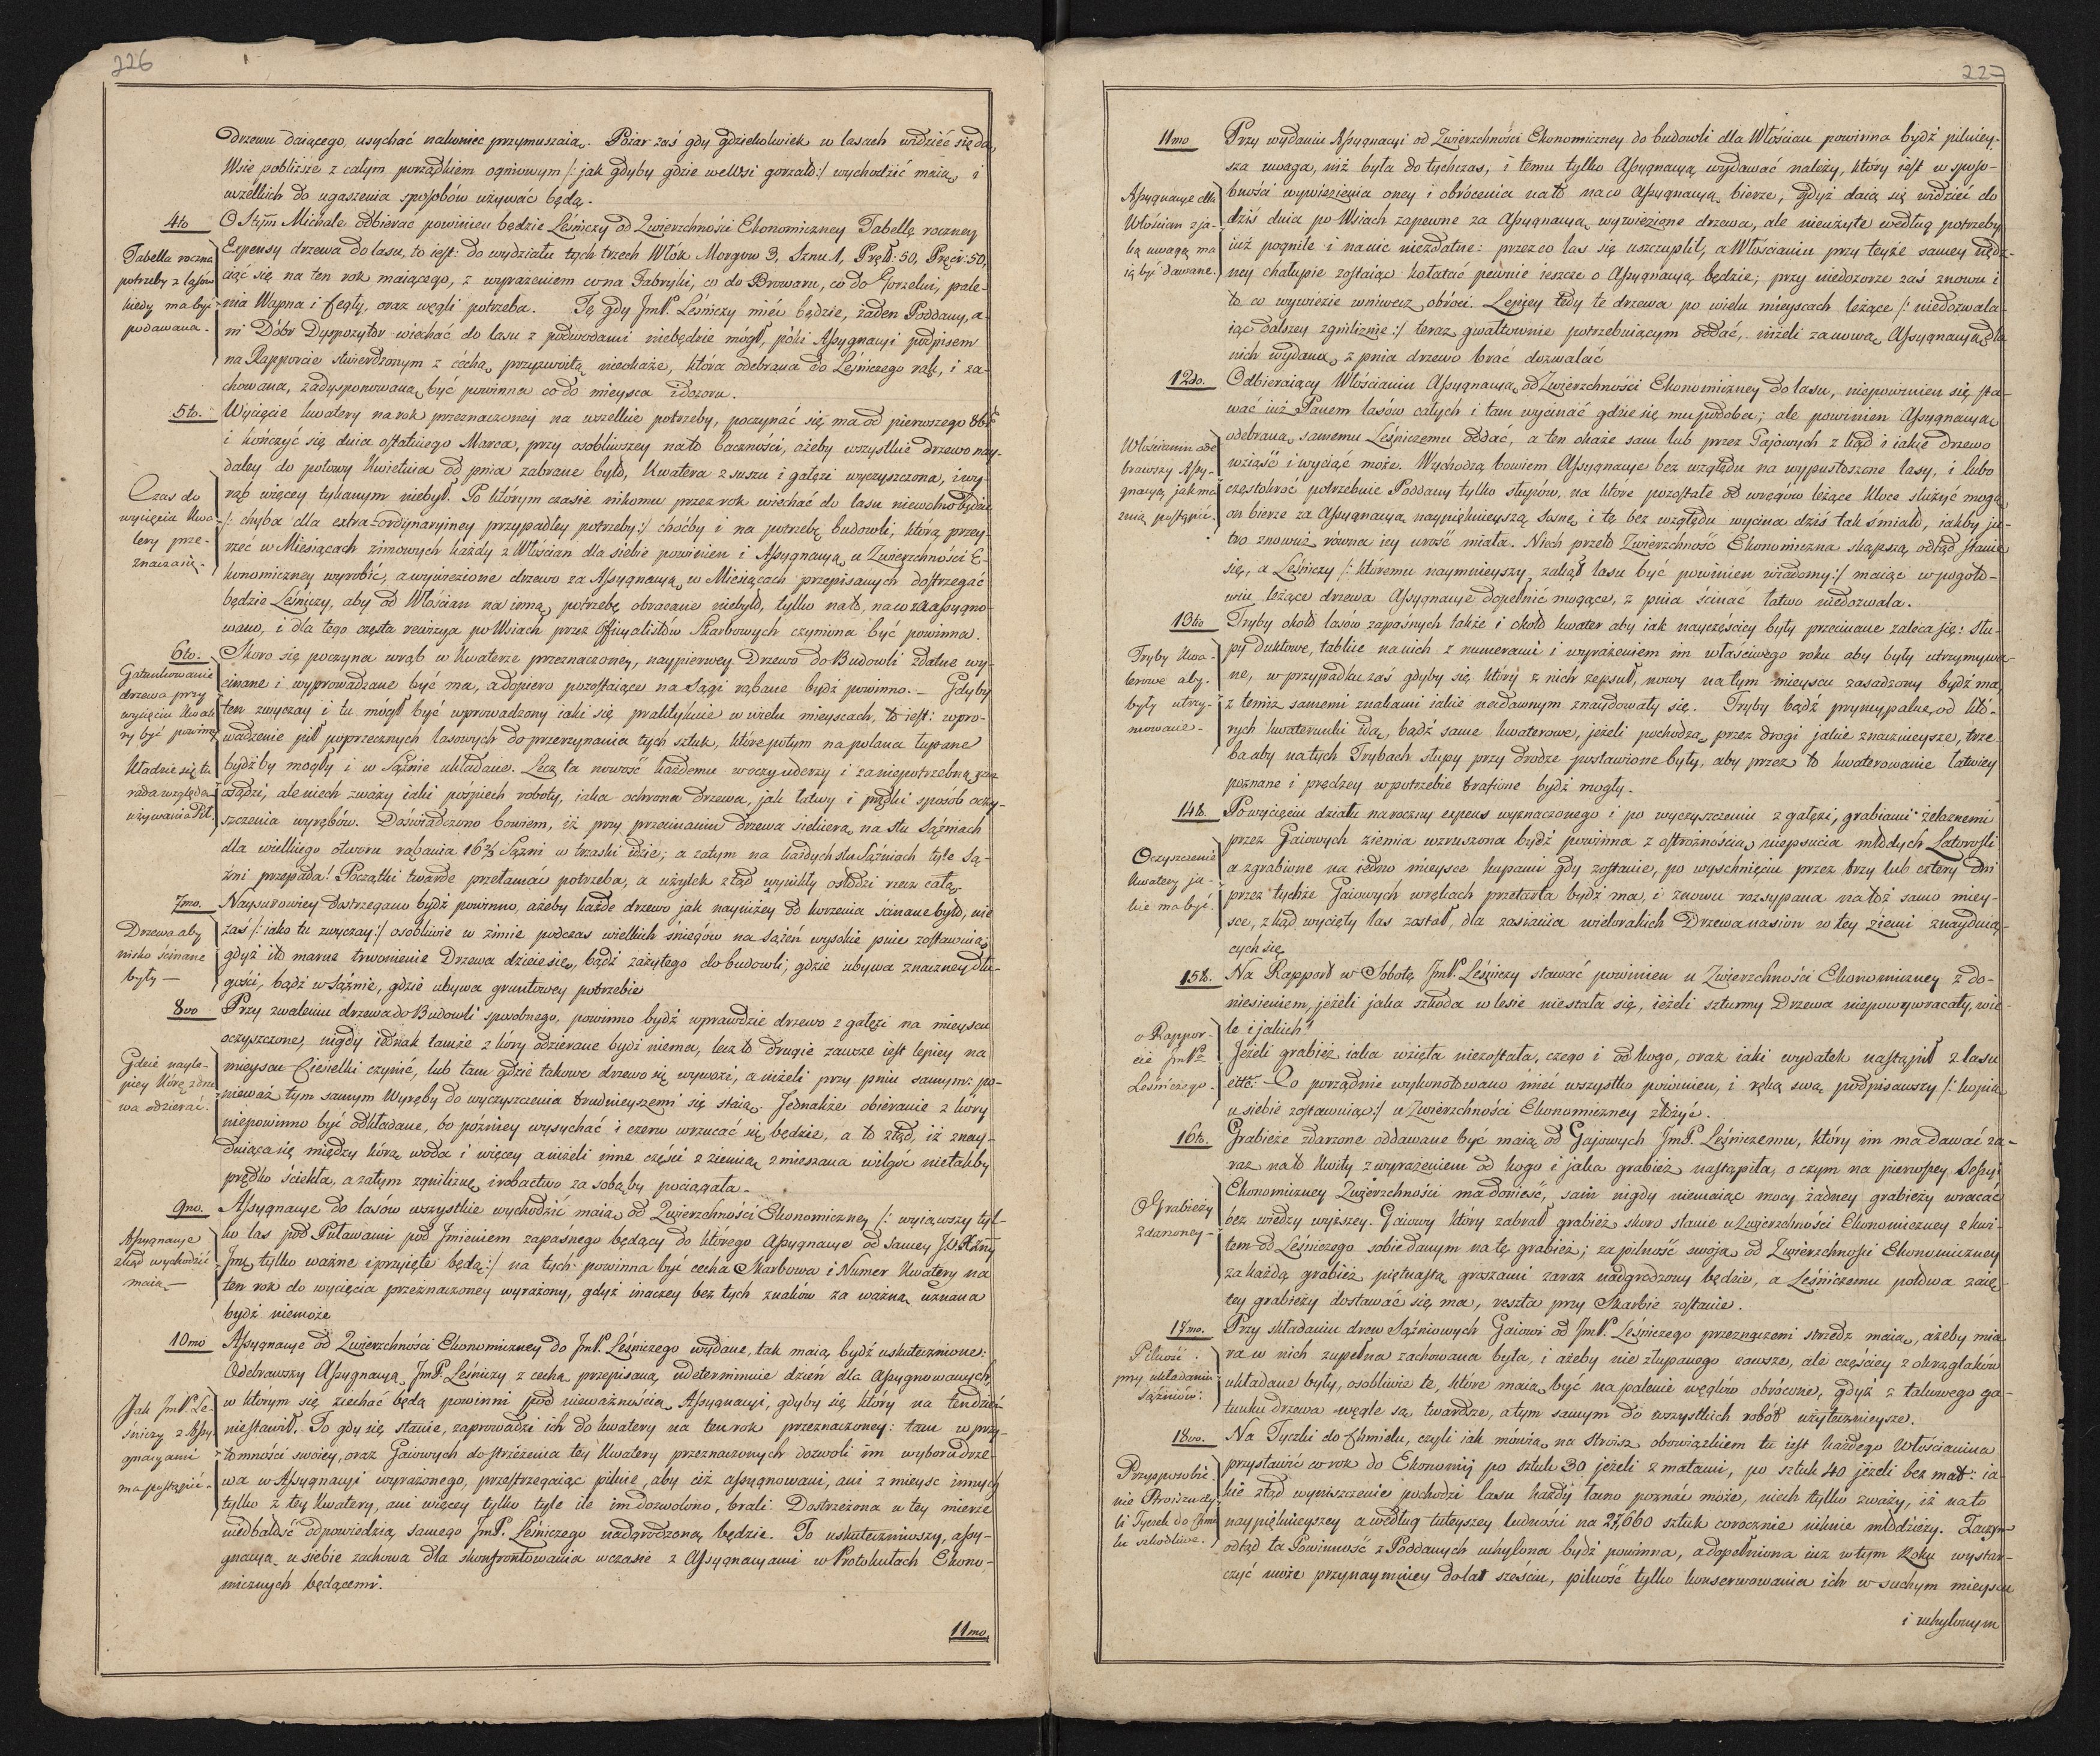 226
drzewu daiącego, usychać nakoniec przymuszaią. Pożar zaś gdy gdziekolwiek w lasach widzieć się da,
Wsie pobliższe z całym porządkiem ogniowym /: jak gdyby gdzie we Wsi gorzało :/ wychodzić maią, i
wszelkich do ugaszenia sposobów używać będą.
4to
O Stym Michale odbierać powinien będzie Leśniczy od Zwierzchności Ekonomiczney Tabellę roczney
Tabella roczna
potrzeby z lasów
kiedy ma być
podawana.
Expensy drzewa do lasu, to iest: do wydziału tych trzech Włók Morgow 3, Sznu. 1, Prętó: 50, Pręcir: 50,
ciąć się na ten rok maiącego, z wyrażeniem co na Fabryki, co do Browaru, co do Gorzelni, pale-
nia Wapna i Cegły, oraz węgli potrzeba. Tę gdy JmP. Leśniczy mieć będzie, żaden Poddany, a-
ni Dóbr Dyspozytor wiechać do lasu z podwodami niebędzie mógł, póki Assygnacyi podpisem
na Rapporcie stwierdzonym z cechą przyzwoitą nieokaże, która odebrana do Leśniczego rąk, i za-
chowana, zadysponowaną być powinna co do mieysca i dozoru.
5to.
Wycięcie kwatery na rok przeznaczoney na wszelkie potrzeby, poczynać się ma od pierwszego 8bra
i kończyć się dnia ostatniego Marca, przy osobliwszey na to baczności, ażeby wszystkie drzewo nay-
daley do połowy Kwietnia od pnia zabrane było, Kwatera z suszu i gałęzi wyczyszczona, i wy-
Czas do
wycięcia Kwa-
tery prze-
znaczania.
rąb więcey tykanym niebył. Po którym czasie nikomu przez rok wiechać do lasu niewolno będzie
/: chyba dla extra-ordynaryiney przypadłey potrzeby :/ choćby i na potrzebę budowli, którą przey-
rzeć w Miesiącach zimowych każdy z Włościan dla siebie powinien i Assygnacyą u Zwierzchności E-
konomiczney wyrobić, a wywiezione drzewo za Assygnacyą w Miesiącach przepisanych dostrzegać
będzie Leśniczy, aby od Włościan na inną potrzebę obracane niebyło, tylko na to, na co zaassygno-
wano, i dla tego częsta rewizya po Wsiach przez Officyalistów Skarbowych czyniona być powinna.
6to.
Skoro się poczyna wrąb w Kwaterze przeznaczoney, naypierwey Drzewo do Budowli zdatne wy-
Gatunkowanie
drzewa przy
wycięciu Kwate
ry być powinno
cinane i wyprowadzane być ma, a dopiero pozostaiące na Sągi rąbane bydź powinno. — Gdyby
ten zwyczay i tu mógł być wprowadzony iaki się praktykuie w wielu mieyscach, to iest: wpro-
wadzenie pił poprzecznych lasowych do przerzynania tych sztuk, które potym na polana łupane
Kładzie się tu
rada względem
używania Pił.
bydźby mogły i w Sążnie układane. Lecz ta nowość każdemu w oczy uderzy i za niepotrzebną za-
osądzi, ale niech zważy iaki pośpiech roboty, iaka ochrona drzewa, jak łatwy i prędki sposób oczy-
szczenia wyrębów. Doświadczono bowiem, iż przy przecinaniu drzewa siekierą na stu Sążniach
dla wielkiego otworu rąbania 16⅔ Sążni w trzaski idzie; a zatym na każdych stu Sążniach tyle Są-
żni przepada! Początki twarde przełamać potrzeba, a użytek ztąd wynikły osłodzi rzecz całą.
7mo.
Naysurowiey dostrzegano bydź powinno, ażeby każde drzewo jak nayniżey od korzenia ścinane było, nie
Drzewa aby
nisko ścinane
były —
zaś /: iako tu zwyczay :/ osobliwie w zimie podczas wielkich śniegów na sążeń wysokie pnie zostawuiąc
gdyż i to marne trwonienie Drzewa dzieie się, bądź zażytego do budowli, gdzie ubywa znaczney dłu-
gości, bądź w Sążnie, gdzie ubywa gruntowey potrzebie
8vo
Przy zwaleniu drzewa do Budowli sposobnego, powinno bydź wprawdzie drzewo z gałęzi na mieyscu
oczyszczone, nigdy iednak tamże z kory odzierane bydź niema, lecz to drugie zawsze iest lepiey na
Gdzie nayle-
piey Korę z drze
wa odzierać.
mieyscu Ciesielki czynić, lub tam gdzie takowe drzewo się wywozi, a niżeli przy pniu samym: po-
nieważ tym samym Wyręby do wyczyszczenia trudnieyszemi się staią. Jednakże obieranie z kory
niepowinno być odkładane, bo pózniey wysychać i czerw wrzucać się będzie, a to ztąd, iż znay-
duiąca się między korą woda i więcey aniżeli inne części z ziemią zmieszana wilgoć nie takby
prędko ściekła, a zatym zgniliznę i robactwo za sobąby pociągała.
9no.
Assygnacye do lasów wszystkie wychodzić maią od Zwierzchności Ekonomiczney /: wyiąwszy tyl-
Assygnacye
zkąd wychodzić
maią —
ko las pod Puławami pod Jmieniem zapaśnego będący do którego Assygnacye od samey J.O. Xżny
Jmci tylko ważne i przyięte będą :/ na tych powinna być cecha Skarbowa i Numer Kwatery na
ten rok do wycięcia przeznaczoney wyrażony, gdyż inaczey bez tych znaków za ważną uznana
bydź niemoże
10mo
Assygnacye od Zwierzchności Ekonomiczney do JmP. Leśniczego wydane, tak maią bydź uskutecznione:
Odebrawszy Assygnacyą JmP. Leśniczy z cechą przepisaną, udeterminuie dzień dla assygnowanych,
Jak JmP. Le-
śniczy z Assy-
gnacyami
ma postąpić.
w którym się ziechać będą powinni pod nieważnością Assygnacyi, gdyby się który na ten dzień
niestawił. To gdy się stanie, zaprowadzi ich do kwatery na ten rok przeznaczoney: tam w przy-
tomności swoiey, oraz Gaiowych do strzeżenia tey Kwatery przeznaczonych dozwoli im wyboru drze-
wa w Assygnacyi wyrażonego, przestrzegaiąc pilnie, aby ciż assygnowani, ani z mieysc innych
tylko z tey Kwatery, ani więcey tylko tyle ile im dozwolono, brali. Dostrzeżona w tey mierze
niedbałość odpowiedzią samego JmP. Leśniczego nadgrodzoną będzie. To uskuteczniwszy, assy-
gnacyą u siebie zachowa dla skonfrontowania w czasie z Assygnacyami w Protokułach Ekono-
micznych będącemi.
11mo.
227
11mo
Przy wydaniu Assygnacyi od Zwierzchności Ekonomiczney do budowli dla Włościan powinna bydź pilniey-
sza uwaga, niż była do tychczas, i temu tylko Assygnacyą wydawać należy, który iest w sposo-
Assygnacye dla
Włościan z ja-
ką uwagą ma
ią być dawane.
bności wywiezienia oney i obrócenia na to na co Assygnacyą bierze, gdyż daią się widzieć do
dziś dnia po Wsiach zapewne za Assygnacyą wywiezione drzewa, ale nieużyte według potrzeby
już pogniłe i na nic niezdatne: przez co las się uszczuplił, a Włościanin przy teyże samey nędz-
ney chałupie zostaiąc kołatać pewnie ieszcze o Assygnacyą będzie; przy niedozorze zaś znowu i
to co wywiezie wniwecz obróci. Lepiey tedy te drzewa po wielu mieyscach leżące /: niedozwala-
iąc dalszey zgniliznie :/ teraz gwałtownie potrzebuiącym oddać, niżeli za nową Assygnacyą dla
nich wydaną, z pnia drzewo brać dozwalać
12do.
Odbieraiący Włościanin Assygnacyą od Zwierzchności Ekonomiczney do lasu, niepowinien się sta-
wać iuż Panem lasów całych i tam wycinać gdzie się mu podoba; ale powinien Assygnacyą
Włościanin ode
brawszy Assy-
gnacyą jak ma
znią postąpić.
odebraną samemu Leśniczemu oddać, a ten okaże sam lub przez Gajowych z kąd i iakie drzewo
wziąść i wyciąć może. Wychodzą bowiem Assygnacye bez względu na wypustoszone lasy, i lubo
częstokroć potrzebuie Poddany tylko słupów, na które pozostałe od wręgów leżące kloce służyć mogą
on bierze za Assygnacyą naypięknieyszą Sosnę i tę bez względu wycina dziś tak śmiało, iakby ju-
tro znowuż równa iey urość miała. Niech przeto Zwierzchność Ekonomiczna skąpszą odtąd stanie
się, a Leśniczy /: któremu naymnieyszy zakąt lasu być powinien wiadomy :/ maiąc w pogoto-
wiu leżące drzewa Assygnacye dopełnić mogące, z pnia ścinać łatwo niedozwala.
13tio
Tryby około lasów zapaśnych także i około kwater aby iak nayczęściey były przecinane zaleca się: słu-
Tryby Kwa-
terowe aby
były utrzy-
mowane.
py duktowe, tablice na nich z numerami i wyrażeniem im właściwego roku aby były utrzymywa-
ne, w przypadku zaś gdyby się który z nich zepsuł, nowy na tym mieyscu zasadzony bydź ma,
z temiż samemi znakami iakie na dawnym znaydowały się. Tryby bądź pryncypalne, od któ-
rych kwaterunki idą, bądź same kwaterowe, jeżeli pochodzą przez drogi jakie znacznieysze, trze-
ba aby na tych Trybach słupy przy drodze postawione były, aby przez to kwaterowanie łatwiey
poznane i prędzey w potrzebie trafione bydź mogły.
14to.
Po wycięciu działu na roczny expens wyznaczonego i po wyczyszczeniu z gałęzi, grabiami żelaznemi
Oczyszczenie
Kwatery ja-
kie ma być.
przez Gaiowych ziemia wzruszona bydź powinna z ostrożnością niepsucia młodych Latorośli
a zgrabione na iedno mieysce kupami gdy zostanie, po wyschnięciu przez trzy lub cztery dni
przez tychże Gaiowych w rękach przetarta bydź ma, i znowu rozsypana na toż samo miey-
sce, z kąd wycięty las został, dla zasiania wielorakich Drzewa nasion w tey ziemi znayduią-
cych się
15to.
Na Rapport w Sobotę JmP. Leśniczy stawać powinien u Zwierzchności Ekonomiczney z do-
niesieniem, jeżeli jaka szkoda w lesie niestała się, ieżeli szturmy Drzewa niepowywracały, wie-
o Rappor-
cie JmPa
Leśniczego.
le i jakich?
Jeżeli grabież iaka wzięta niezostała, czego i od kogo, oraz iaki wydatek nastąpił z lasu
ettc. — Co porządnie wykonotowano mieć wszystko powinien, i ręką swą podpisawszy /: kopią
u siebie zostawuiąc :/ u Zwierzchności Ekonomiczney złożyć.
16to.
Grabieże zdarzone oddawane być maią od Gajowych JmP. Leśniczemu, który im ma dawać za-
raz na to kwity z wyrażeniem od kogo i jaka grabież nastąpiła, o czym na pierwszey Sessyi
O Grabieży
zdarzoney —
Ekonomiczney Zwierzchności ma donieść, sam nigdy niemaiąc mocy żadney grabieży wracać
bez wiedzy wyższey. Gaiowy który zabrał grabież skoro stanie u Zwierzchności Ekonomiczney z kwi-
tem od Leśniczego sobie danym na tę grabież; za pilność swoją od Zwierzchności Ekonomiczney
za każdą grabież piętnastą groszami zaraz nadgrodzony będzie, a Leśniczemu połowa zaię-
tey grabieży dostawać się ma, reszta przy Skarbie zostanie.
17mo.
Przy składaniu drew Sążniowych Gaiowi od JmP. Leśniczego przeznaczeni strzedz maią, ażeby mia-
Pilność
przy układaniu
sążniów.
ra w nich zupełna zachowana była, i ażeby nie złupanego zawsze, ale częściey z okrąglaków
układane były, osobliwie te, które maią być na palenie węglów obrócone, gdyż z takowego ga-
tunku drzewa węgle są twardsze, a tym samym do wszystkich robót użytecznieysze.
18vo.
Na Tyczki do Chmielu, czyli iak mówią na stroisz obowiązkiem tu iest każdego Włościanina
Przysposobie-
nie Stroiszu czy-
li Tyczek do Chmie
lu szkodliwe.
przystawić co rok do Ekonomij po sztuk 30 jeżeli z matami, po sztuk 40 jeżeli bez mat: ia-
kie ztąd wyniszczenie pochodzi lasu każdy łacno poznać może, niech tylko zważy, iż na to
naypięknieyszey a według tuteyszey ludności na 27,660 sztuk corocznie niknie młodzieży. Zaczym
odtąd ta Powinność z Poddanych uchylona bydź powinna, a dopełniona iuż w tym Roku wystar-
czyć może przynaymniey do lat sześciu, pilność tylko konserwowania ich w suchym mieyscu
i uchylonym